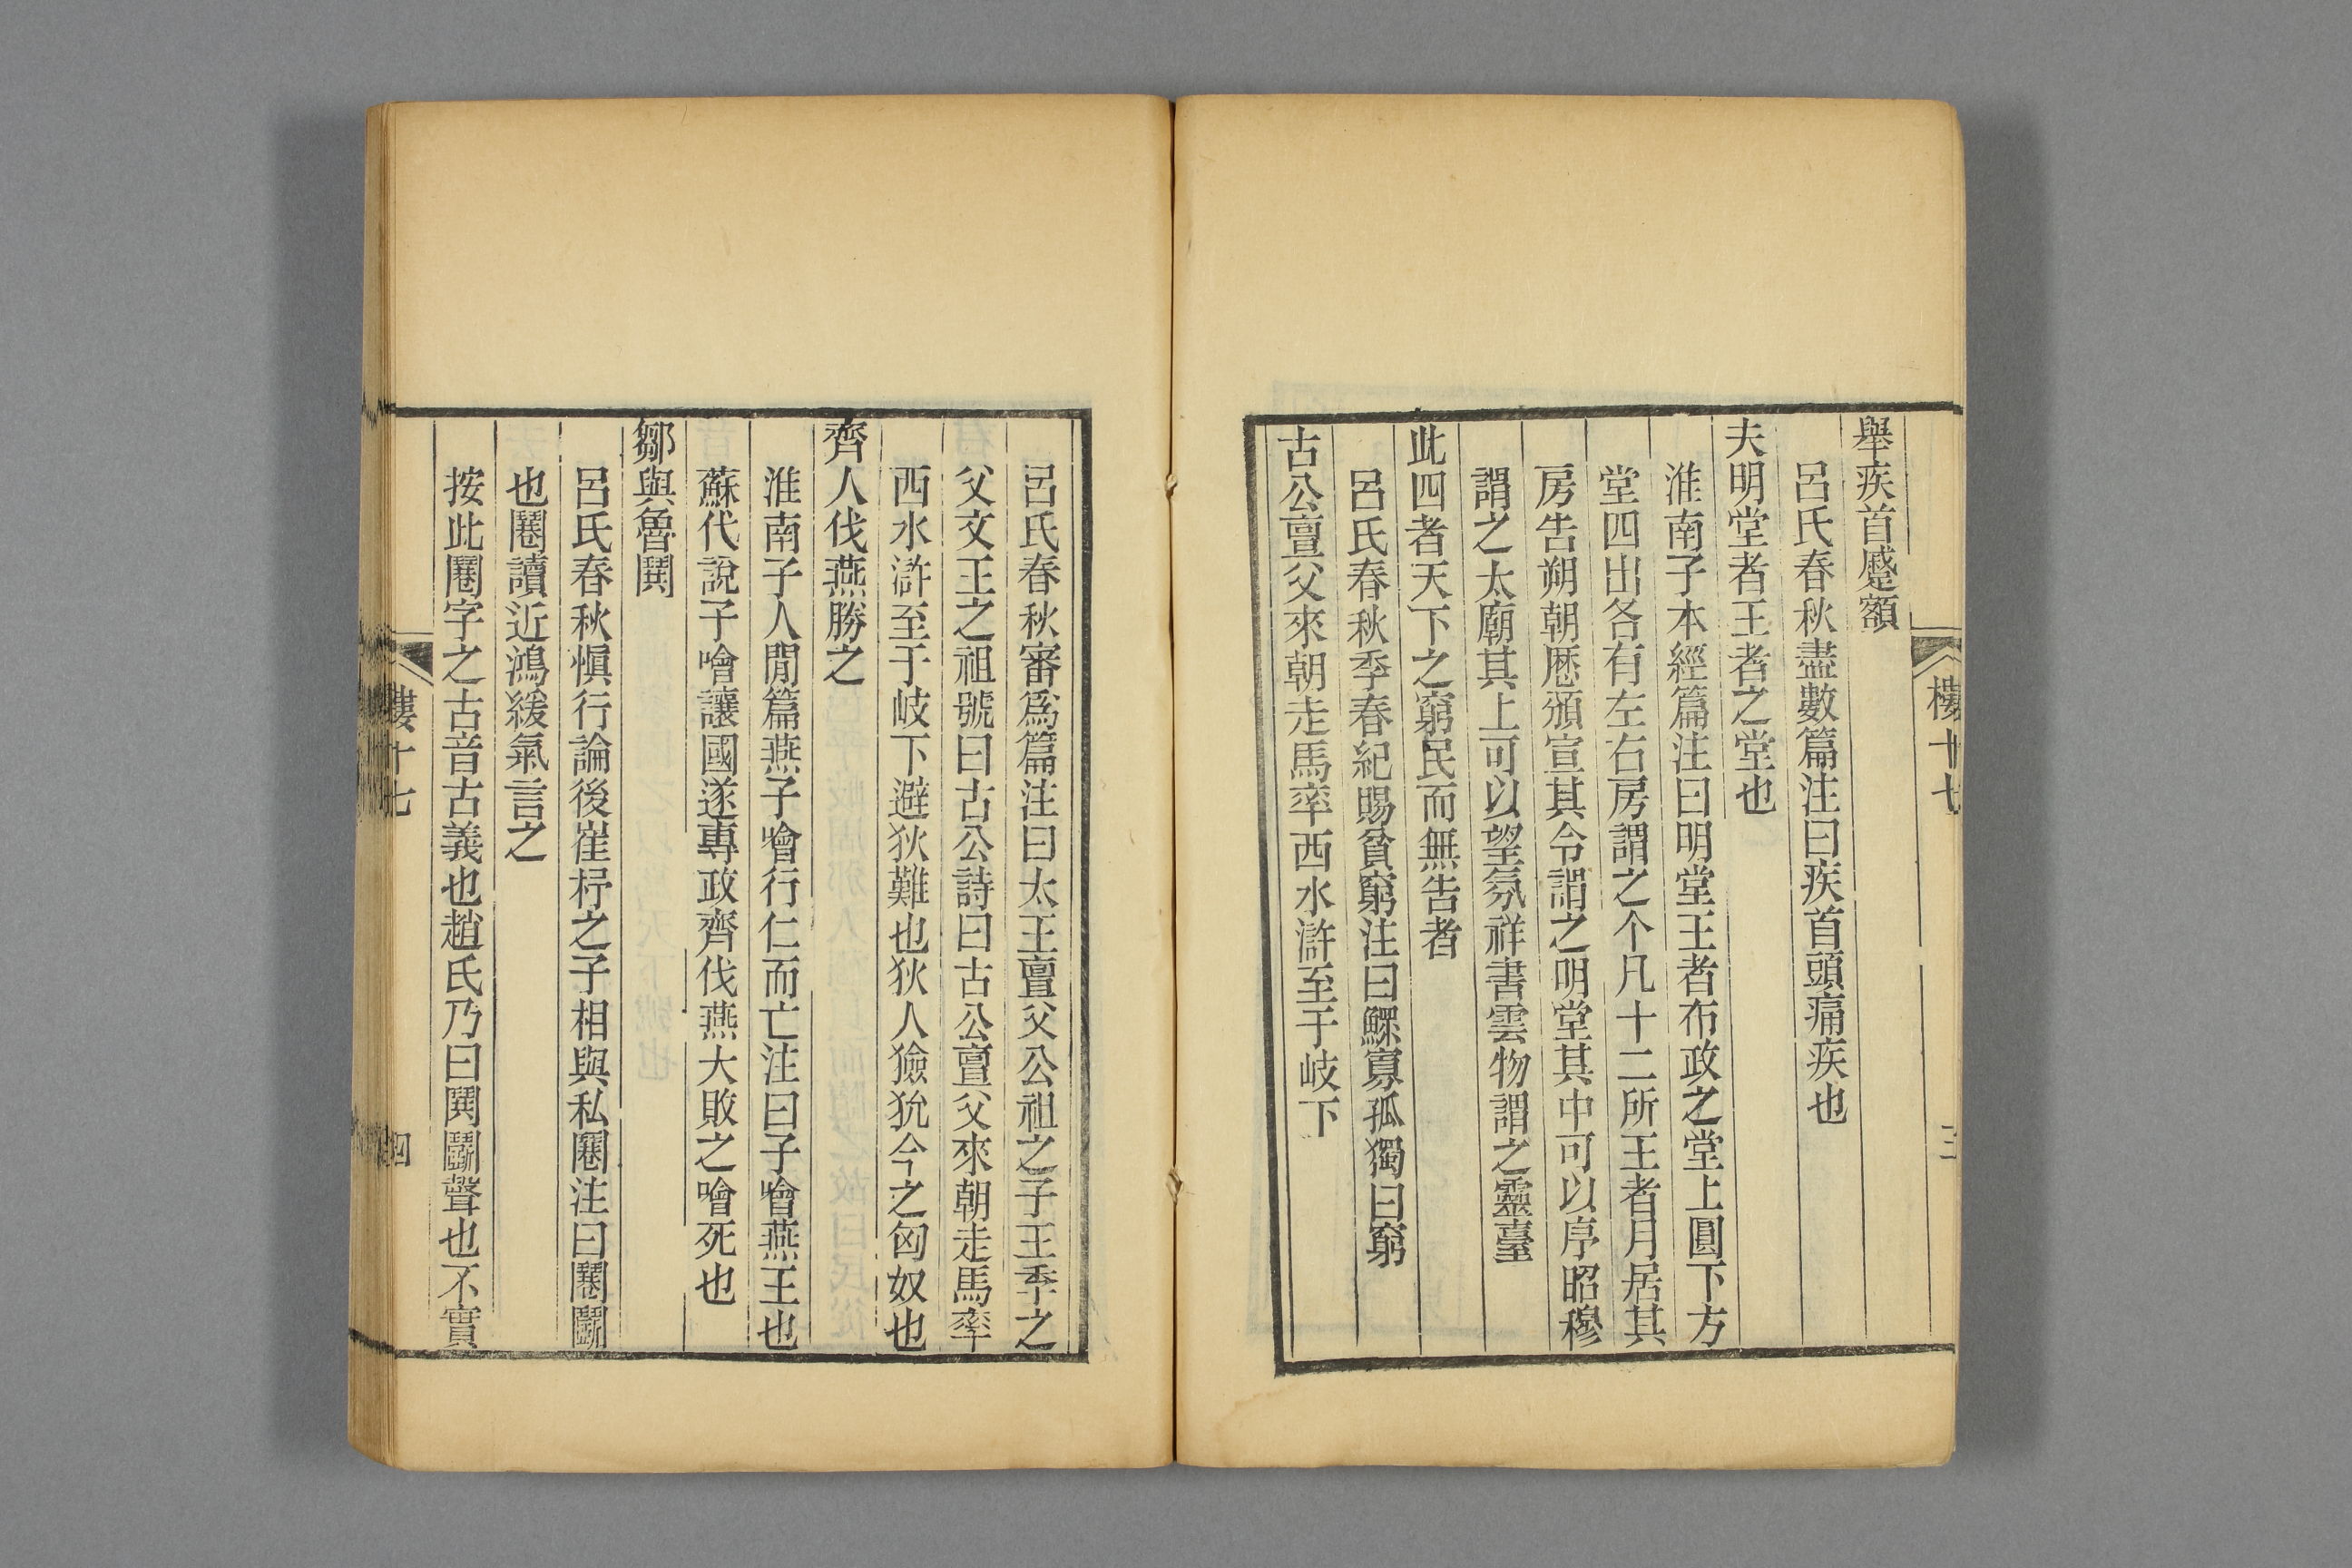 舉疾首蹙額
呂氏春秋盡數篇注曰疾首頭痛疾也
夫明堂者王者之堂也
淮南子本經篇注曰明堂王者布政之堂上圓下方
堂四出各有左右房謂之个凡十二所王者月居其
房告朔朝歷頒宣其令謂之明堂其中可以序昭穆
謂之太廟其上可以望氛祥書雲物謂之靈臺
此四者天下之窮民而無告者
呂氏春秋季春紀賜貧窮注曰鰥寡孤獨曰窮
古公亶父來朝走馬率西水滸至于岐下
樓十七
三
呂氏春秋審爲篇注曰太王亶父公祖之子王季之
父文王之祖號曰古公詩曰古公亶父來朝走馬率
西水滸至于岐下避狄難也狄人獫狁今之匈奴也
齊人伐燕勝之
淮南子人閒篇燕子噲行仁而亡注曰子噲燕王也
蘇代說子噲讓國遂專政齊伐燕大敗之噲死也
鄒與魯鬨
呂氏春秋愼行論後崔杼之子相與私鬮注曰鬮鬭
也鬮讀近鴻緩氣言之
按此鬮字之古音古義也趙氏乃曰鬨鬭聲也不實
樓十七
四